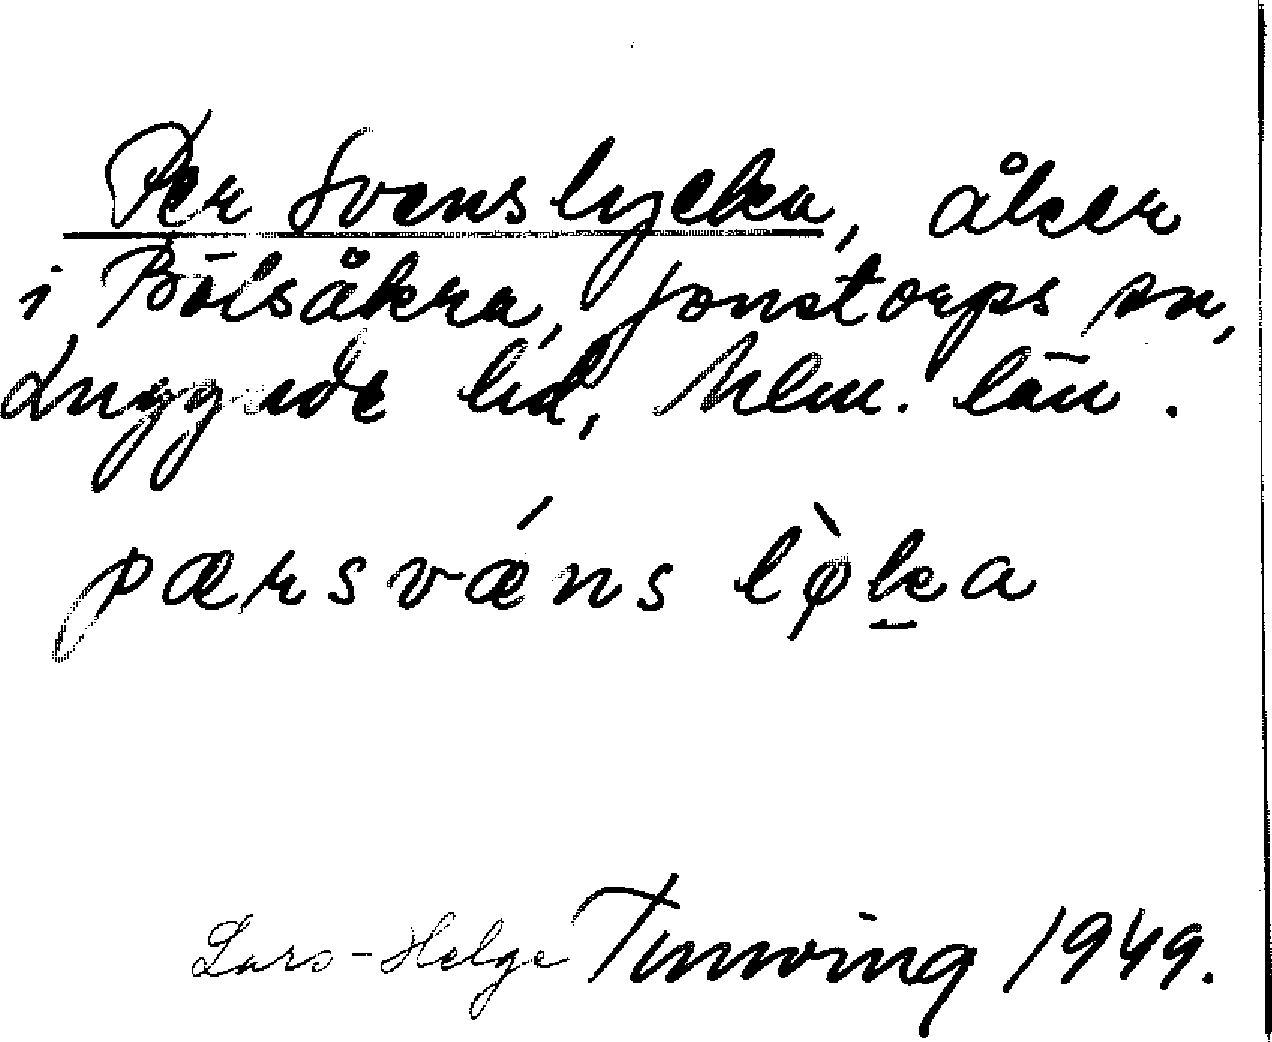 Per Svenslycka, åker
i Bölsåkra, Jonstorps sn,
Luggude hd, Mlm. län.
pærsvǽns lø̀ka
Lars-Helge Tunving 1949.